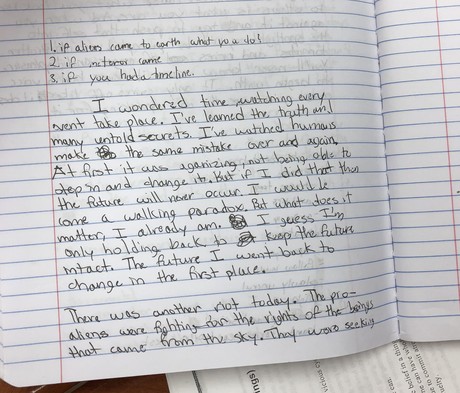 1. if aliens came to earth what you do?
2. if meteror came
3. if you had a timeline.
I wondered time watching every
event take place. I've learned the truth and
many untold secrets. I've watched humans
make the same mistake over and again.
At first it was aganizing, not being able to
step in and change it. But if I did that than
the future will never occur. I would be
come a walking paradox. But what does it
matter, I already am. I guess I'm
only holding back to keep the future
intact. The future I went back to
change in the first place.
There was another riot today. The pro-
aliens were fighting for the rights of the beings
that came from the sky. They were seeking
ings)